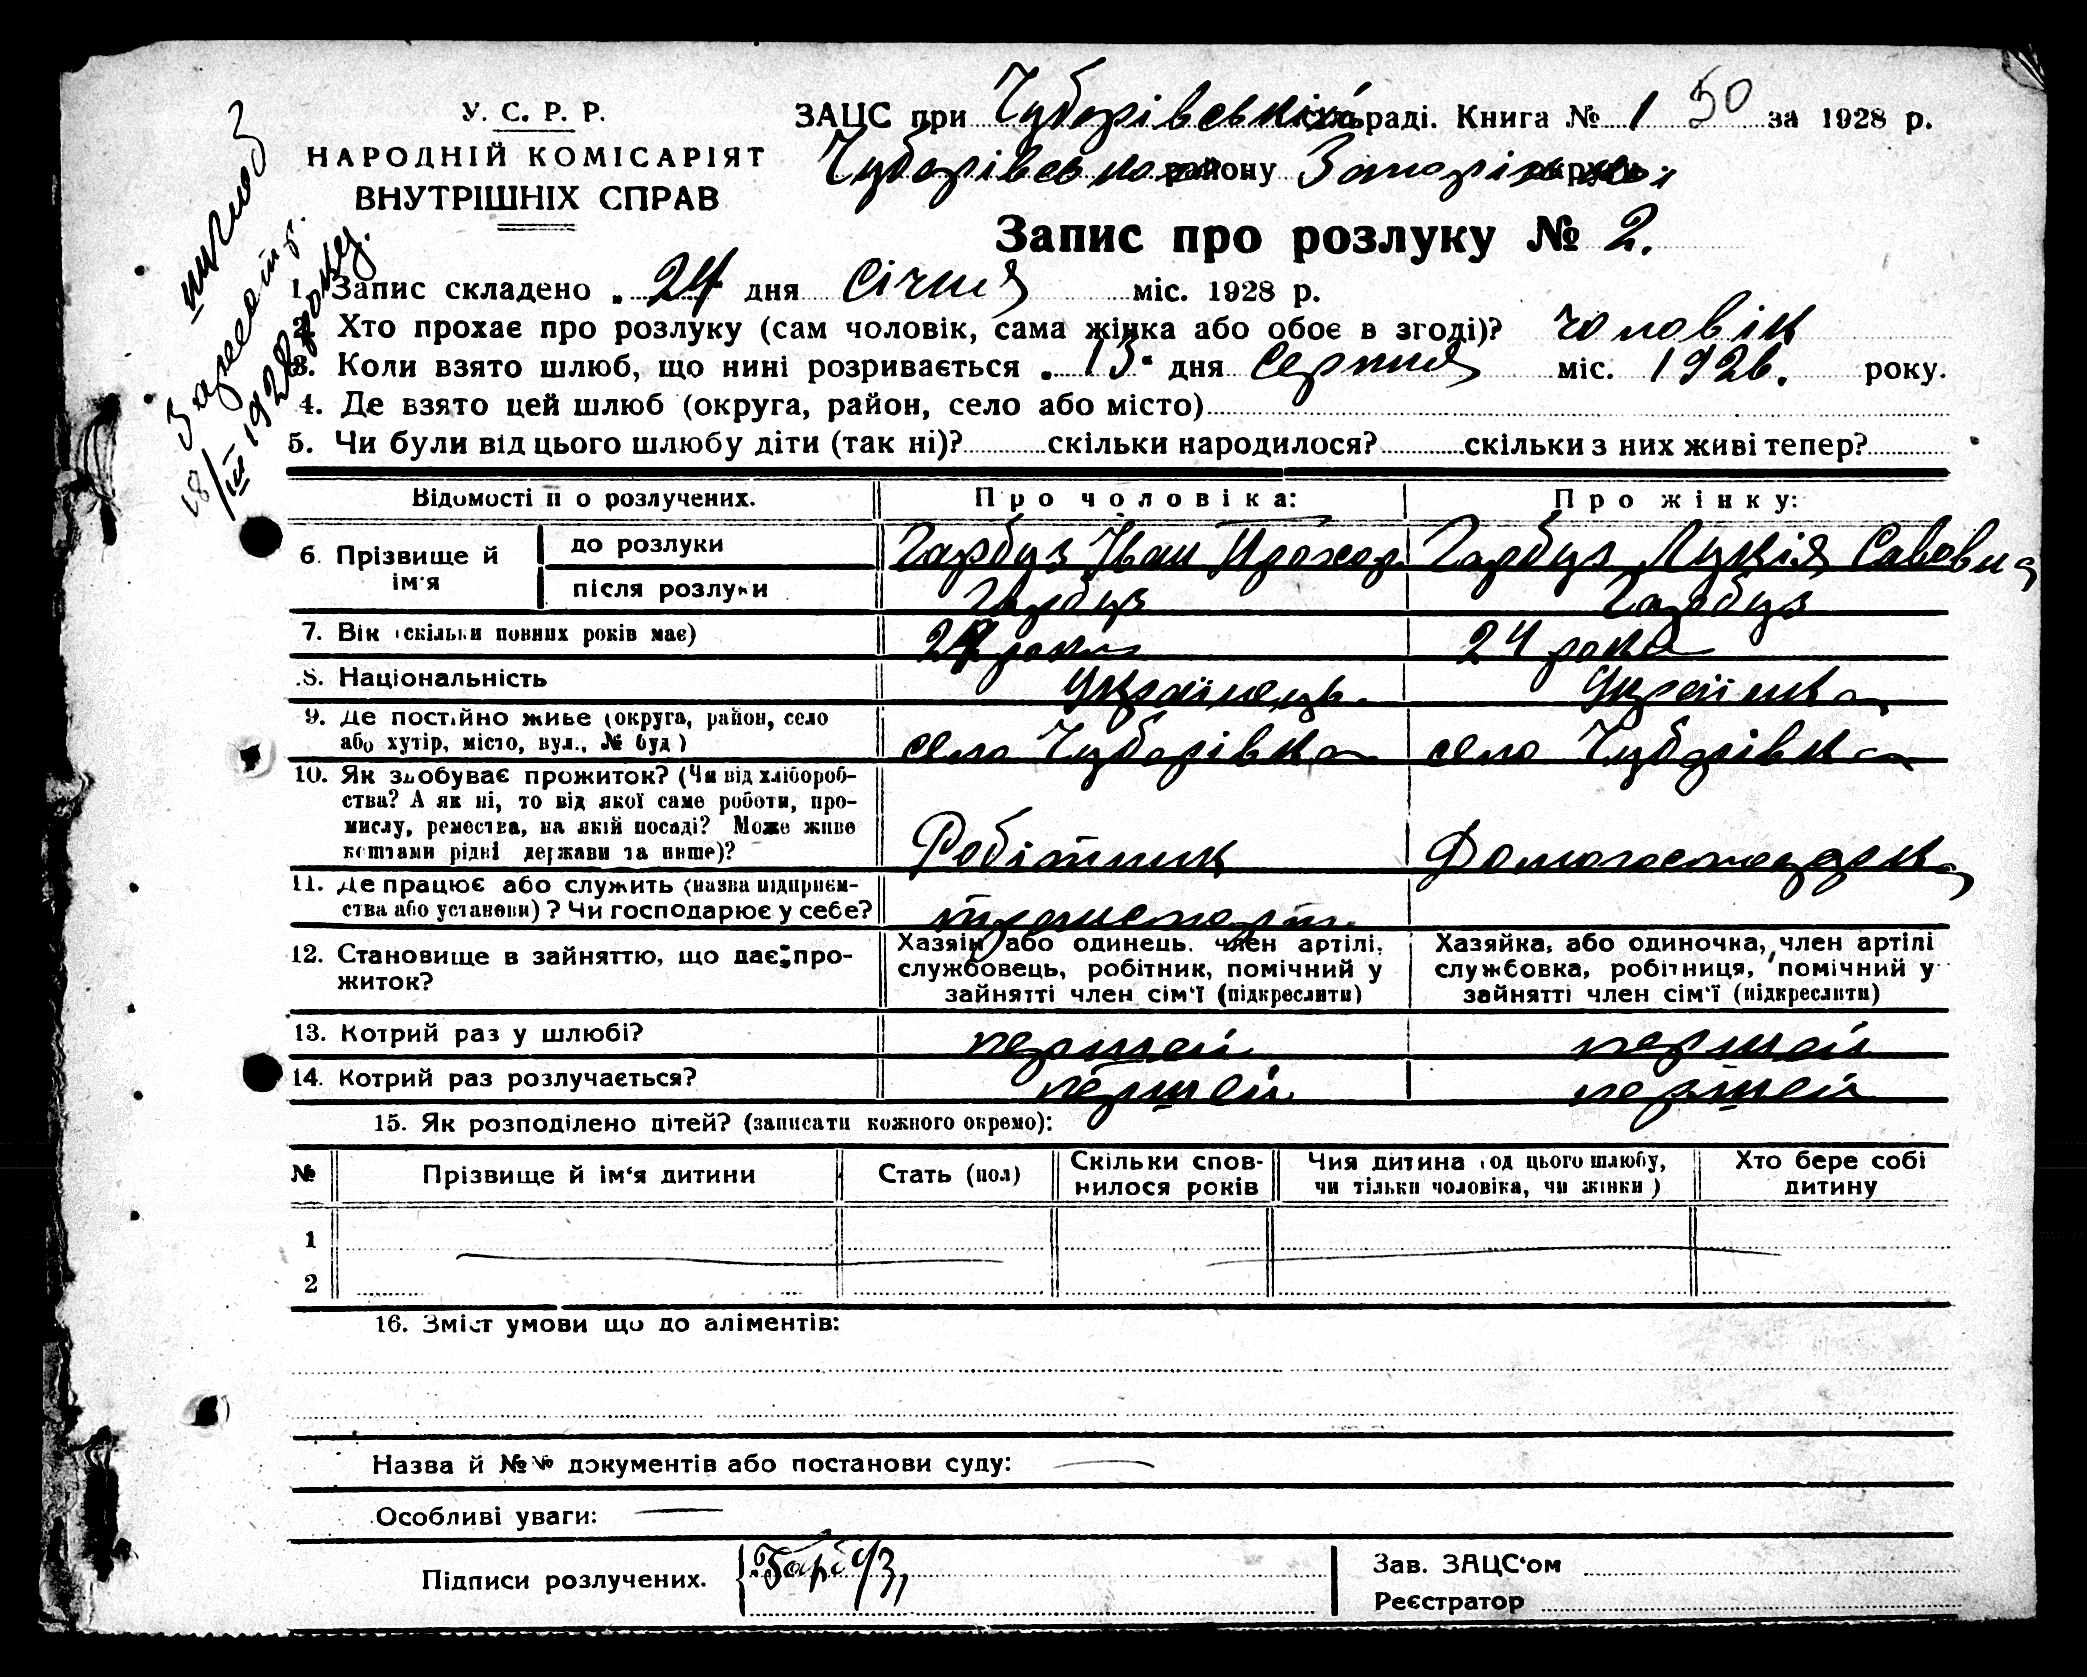 У. С. Р. Р.
НАРОДНІЙ КОМІСАРІЯТ
ВНУТРІШНІХ СПРАВ
ЗАЦС при Чубарівській сільраді. Книга № 1 50 за 1928 р.
Чубарівського району Запоріжської округи
Запис про розлуку № 2.
18/III 1928 року.
1. Запис складено „ 24 дня січня міс. 1928 р.
2. Хто прохає про розлуку (сам чоловік, сама жінка або обоє в згоді)? чоловік
3. Коли взято шлюб, що нині розривається „ 13" дня серпня міс. 1926. року.
4. Де взято цей шлюб (округа, район, село або місто)
5. Чи були від цього шлюбу діти (так ні)? скільки народилося? скільки з них живі тепер?
Відомості п о розлучених. Про чоловіка: Про жінку:
6. Прізвище й ім'я до розлуки Гарбуз Іван Прохор Гарбуз Лукія Савовна
після розлуки Гарбуз Гарбуз
7. Вік (скільки повних років має) роки 24 роки
8. Національність Українець. Українка
9. Де постійно живе (округа, район, село
або хутір, місто, вул., № буд) село Чубарівка село Чубарівка
10. Як здобуває прожиток? (Чи від хліборобства? А як ні, то від якої саме роботи, промислу, ремества, на якій посаді? Може живе
коштами рідні держави та инше)? Робітник Домогосподарка
11. Де працює або служить (назва підприємства або установи)? Чи господарює у себе? транспорт.
12. Становище в зайняттю, що дає прожиток?
Хазяїн або одинець. член артілі,
службовець, робітник, помічний у
зайнятті член сім'ї (підкреслити)
Хазяйка, або одиночка, член артілі
службовка, робітниця, помічний у
зайнятті член сім'ї (підкреслити)
13. Котрий раз у шлюбі? першей першей
14. Котрий раз розлучається? першей першей
15. Як розподілено дітей? (записати кожного окремо):
№ Прізвище й ім'я дитини Стать (пол) Скільки сповнилося років Чия дитина (од цього шлюбу, чи тільки чоловіка, чи жінки) Хто бере собі дитину
1
2
16. Зміст умови що до аліментів:
Назва й №№ документів або постанови суду:
Особливі уваги:
Підписи розлучених. Гарбуз,
Зав. ЗАЦС'ом
Реєстратор